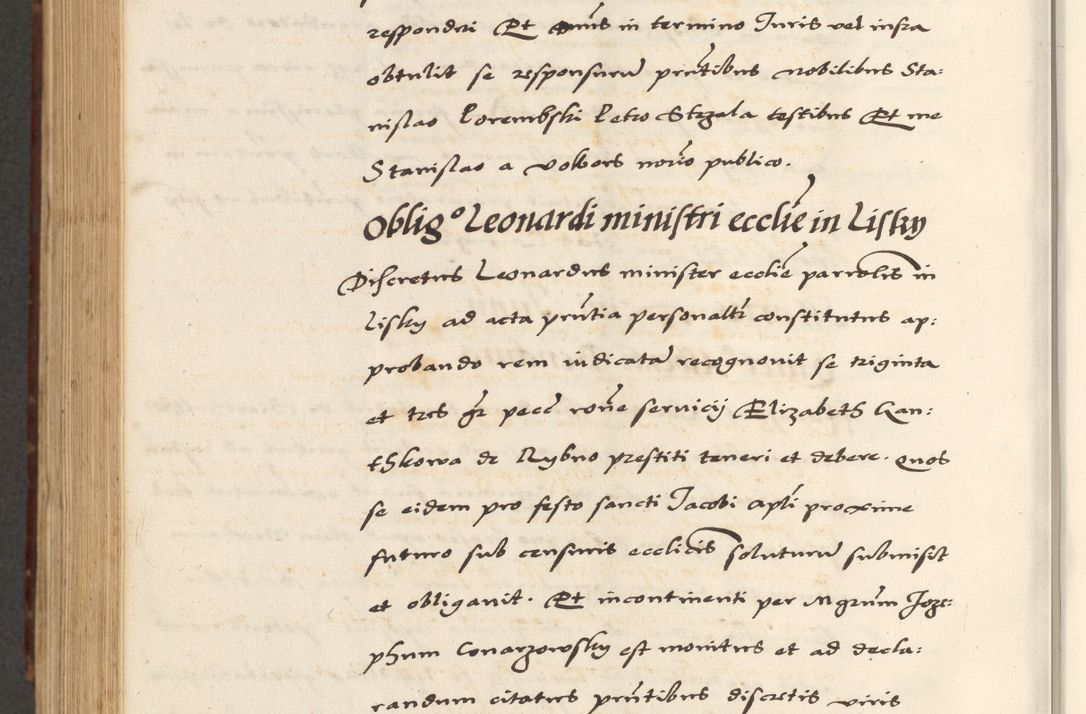 respondẽti Et dnús in termino Juris vel infra
obtulit se responsurū prñtibus nobilibus Sta:
nislao Porembski Petro Strzala testibus Et me
Stanislao a Volbors norío publico.
Obligº Leonardi ministri ecclíe in Lisky
Discretus Leonardus minister ecclíe parrolis in
Lisky ad acta prñtia personaltr constitutus ap:
probando rem iudicatā recognovit se triginta
et tres gr pecc rone servicij Elizabeth Can:
thkowa de Rybno prestiti teneri et debere. quos
se eidem pro festo sancti Jacobi apli proxime
futuro sub censuris ecclicis soluturū submisit
et obligavit. Et incontinenti per Mgrum Joze:
phum Conarzowsky est monitus et ad decla:
randum citatus prñtibus discretis viris